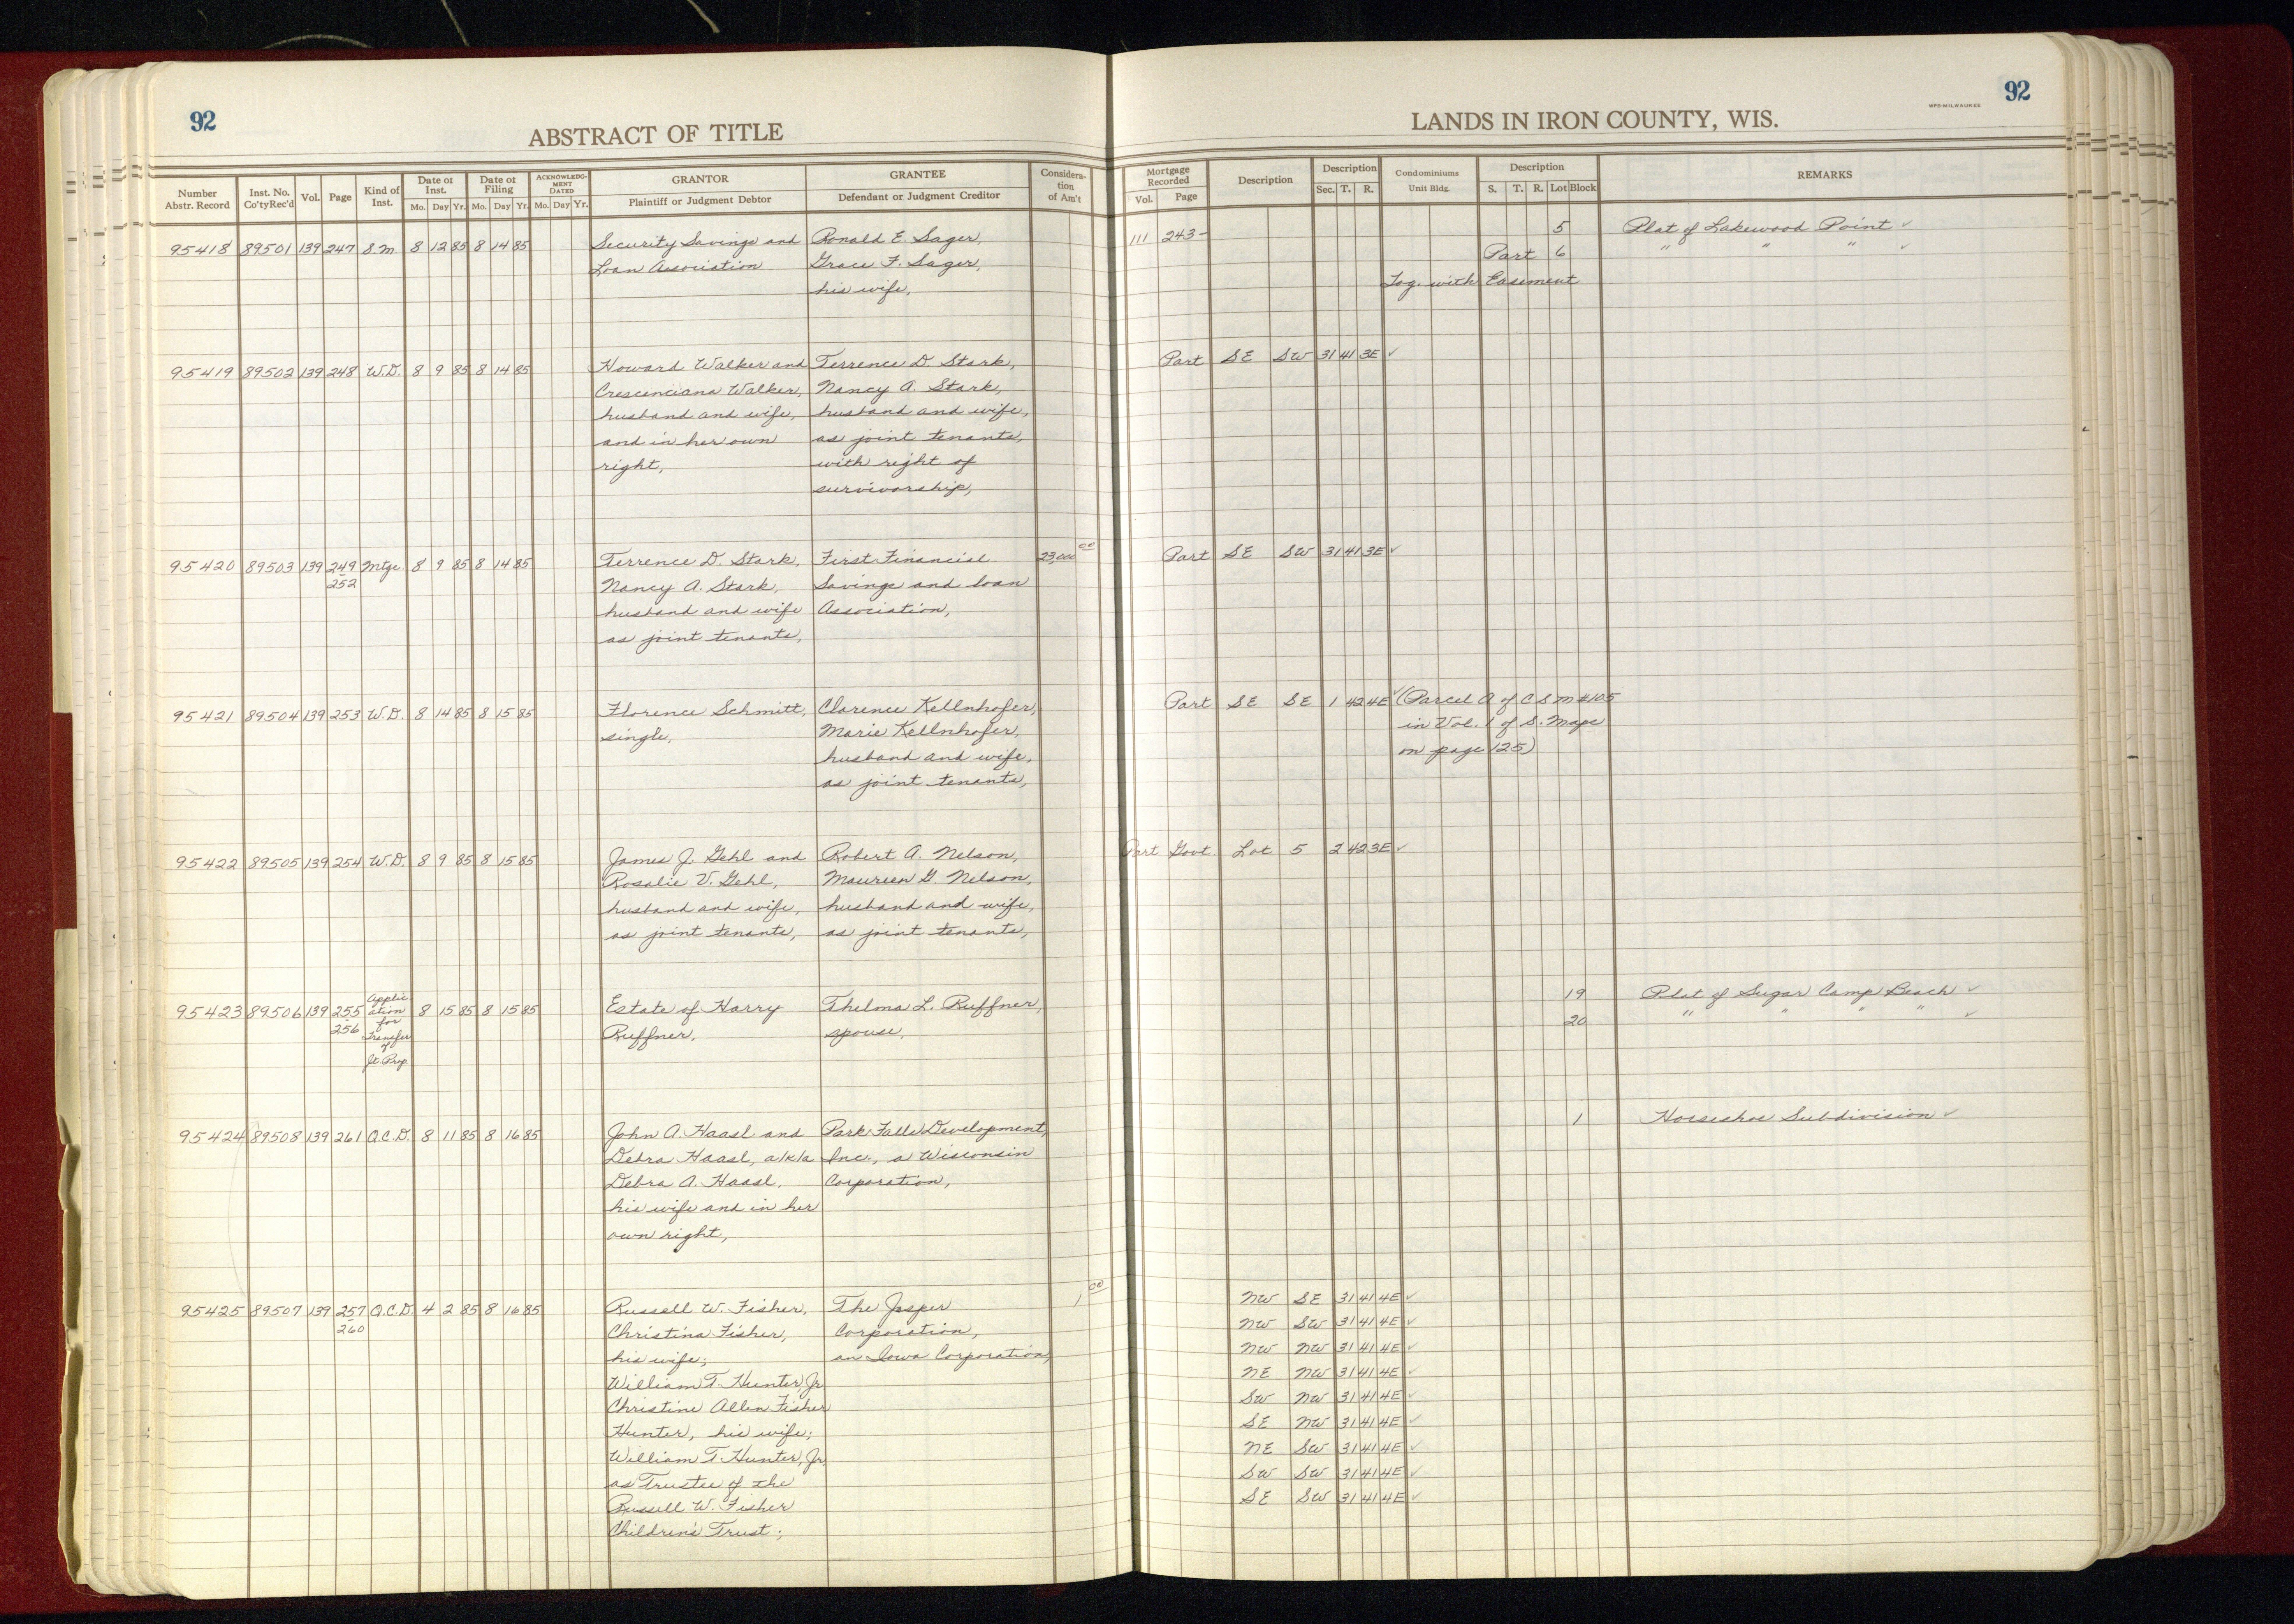 92
ABSTRACT OF TITLE
Number Abstr. Record | Inst. No. Co'tyRec'd | Vol. | Page | Kind of Inst. | Date of Inst. Mo. Day Yr. | Date of Filing Mo. Day Yr. | ACKNOWLEDGMENT DATED Mo. Day Yr. | GRANTOR Plaintiff or Judgment Debtor | GRANTEE Defendant or Judgment Creditor | Consideration of Am't
95418 89501 139 247 S.M. 8 12 85 8 14 85 Security Savings and Ronald E. Sager,
Loan Association Grace F. Sager,
his wife,
95419 89502 139 248 W.D. 8 9 85 8 14 85 Howard Walker and Terrence D. Stark,
Crescenciana Walker, Nancy A. Stark,
husband and wife, husband and wife,
and in her own as joint tenants,
right, with right of
survivorship,
95420 89503 139 249 Mtge. 8 9 85 8 14 85 Terrence D. Stark, First Financial 23,000 00
252 Nancy A. Stark, Savings and Loan
husband and wife Association,
as joint tenants,
95421 89504 139 253 W.D. 8 14 85 8 15 85 Florence Schmitt, Clarence Kellnhofer,
single, Marie Kellnhofer,
husband and wife,
as joint tenants,
95422 89505 139 254 W.D. 8 9 85 8 15 85 James J. Gehl and Robert A. Nelson,
Rosalie V. Gehl, Maureen G. Nelson,
husband and wife, husband and wife,
as joint tenants, as joint tenants,
95423 89506 139 255-256 Application for Transfer of Jt. Prop. 8 15 85 8 15 85 Estate of Harry Thelma L. Ruffner,
Ruffner, spouse,
95424 89508 139 261 Q.C.D. 8 11 85 8 16 85 John A. Haasl and Park Falls Development,
Debra Haasl, a/k/a Inc., a Wisconsin
Debra A. Haasl, Corporation,
his wife and in her
own right,
95425 89507 139 257 Q.C.D. 4 2 85 8 16 85 Russell W. Fisher, The Jasper 1 00
260 Christina Fisher, Corporation,
his wife; an Iowa Corporation,
William T. Hunter, Jr.
Christine Allen Fisher
Hunter, his wife;
William T. Hunter, Jr.
as Trustee of the
Russell W. Fisher
Children's Trust;
92
WPB-MILWAUKEE
LANDS IN IRON COUNTY, WIS.
Mortgage Recorded Vol. Page | Description | Description Sec. T. R. | Condominiums Unit Bldg. | Description S. T. R. Lot Block | REMARKS
111 243- 5 Plat of Lakewood Point ✓
Part 6 " " " ✓
Tog. with Easement
Part SE SW 31 41 3E ✓
Part SE SW 31 41 3E ✓
Part SE SE 1 42 4E ✓ (Parcel A of C S M #105
in Vol. 1 of S. Maps
on page 125)
Part Govt. Lot 5 2 42 3E ✓
19 Plat of Sugar Camp Beach ✓
20 " " " " ✓
1 Horseshoe Subdivision ✓
NW SE 31 41 4E ✓
NW SW 31 41 4E ✓
NW NW 31 41 4E ✓
NE NW 31 41 4E ✓
SW NW 31 41 4E ✓
SE NW 31 41 4E ✓
NE SW 31 41 4E ✓
SW SW 31 41 4E ✓
SE SW 31 41 4E ✓